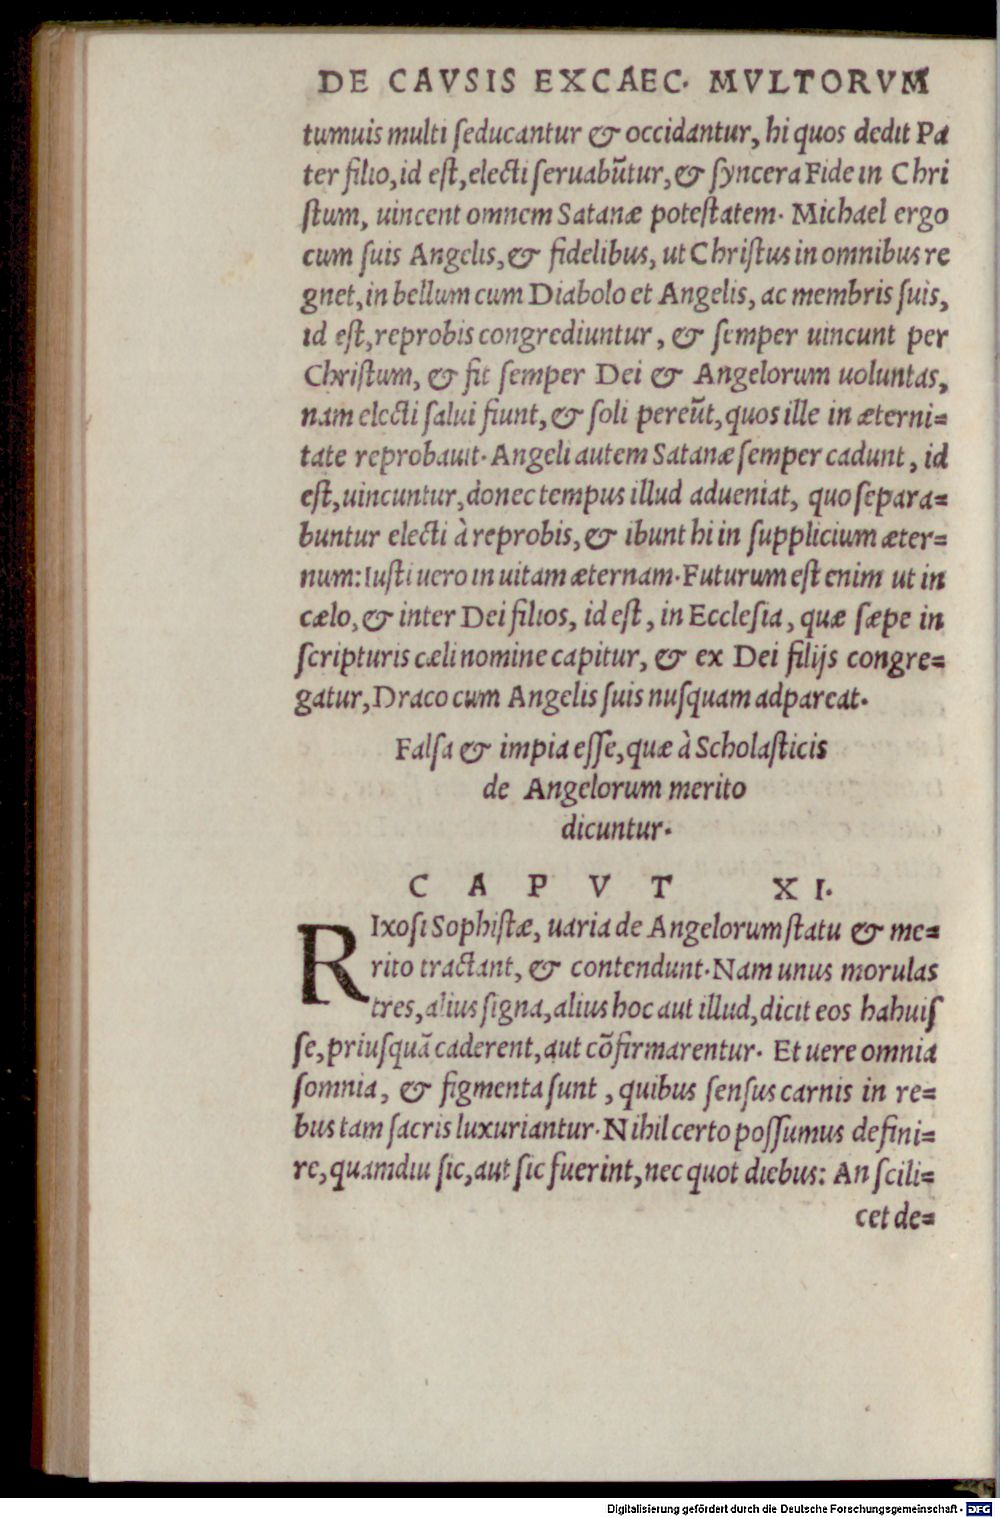 DE CAVSIS EXCAEC. MVLTORVM
tumuis multi ſeducantur & occidantur, hi quos dedit Pa
ter filio, id eſt, electi ſeruabūtur, & ſyncera Fide in Chri
ſtum, uincent omnem Satanæ poteſtatem. Michael ergo
cum ſuis Angelis, & fidelibus, ut Chriſtus in omnibus re
gnet, in bellum cum Diabolo et Angelis, ac membris ſuis,
id eſt, reprobis congrediuntur, & ſemper uincunt per
Chriſtum, & fit ſemper Dei & Angelorum uoluntas,
nam electi ſalui fiunt, & ſoli pereūt, quos ille in æterni=
tate reprobauit. Angeli autem Satanæ ſemper cadunt, id
eſt, uincuntur, donec tempus illud adueniat, quo ſepara=
buntur electi à reprobis, & ibunt hi in ſupplicium æter=
num: Iuſti uero in uitam æternam. Futurum eſt enim ut in
cælo, & inter Dei filios, id eſt, in Eccleſia, quæ ſæpe in
ſcripturis cæli nomine capitur, & ex Dei filijs congre=
gatur, Draco cum Angelis ſuis nuſquam adpareat.
Falſa & impia eſſe, quæ à Scholaſticis
de Angelorum merito
dicuntur.
CAPVT XI.
RIxoſi Sophiſtæ, uaria de Angelorum ſtatu & me=
rito tractant, & contendunt. Nam unus morulas
tres, alius ſigna, alius hoc aut illud, dicit eos habuiſ
ſe, priuſquā caderent, aut cōfirmarentur. Et uere omnia
ſomnia, & figmenta ſunt, quibus ſenſus carnis in re=
bus tam ſacris luxuriantur. Nihil certo poſſumus defini=
re, quamdiu ſic, aut ſic fuerint, nec quot diebus: An ſcili=
cet de=
Digitalisierung gefördert durch die Deutsche Forschungsgemeinschaft - DFG